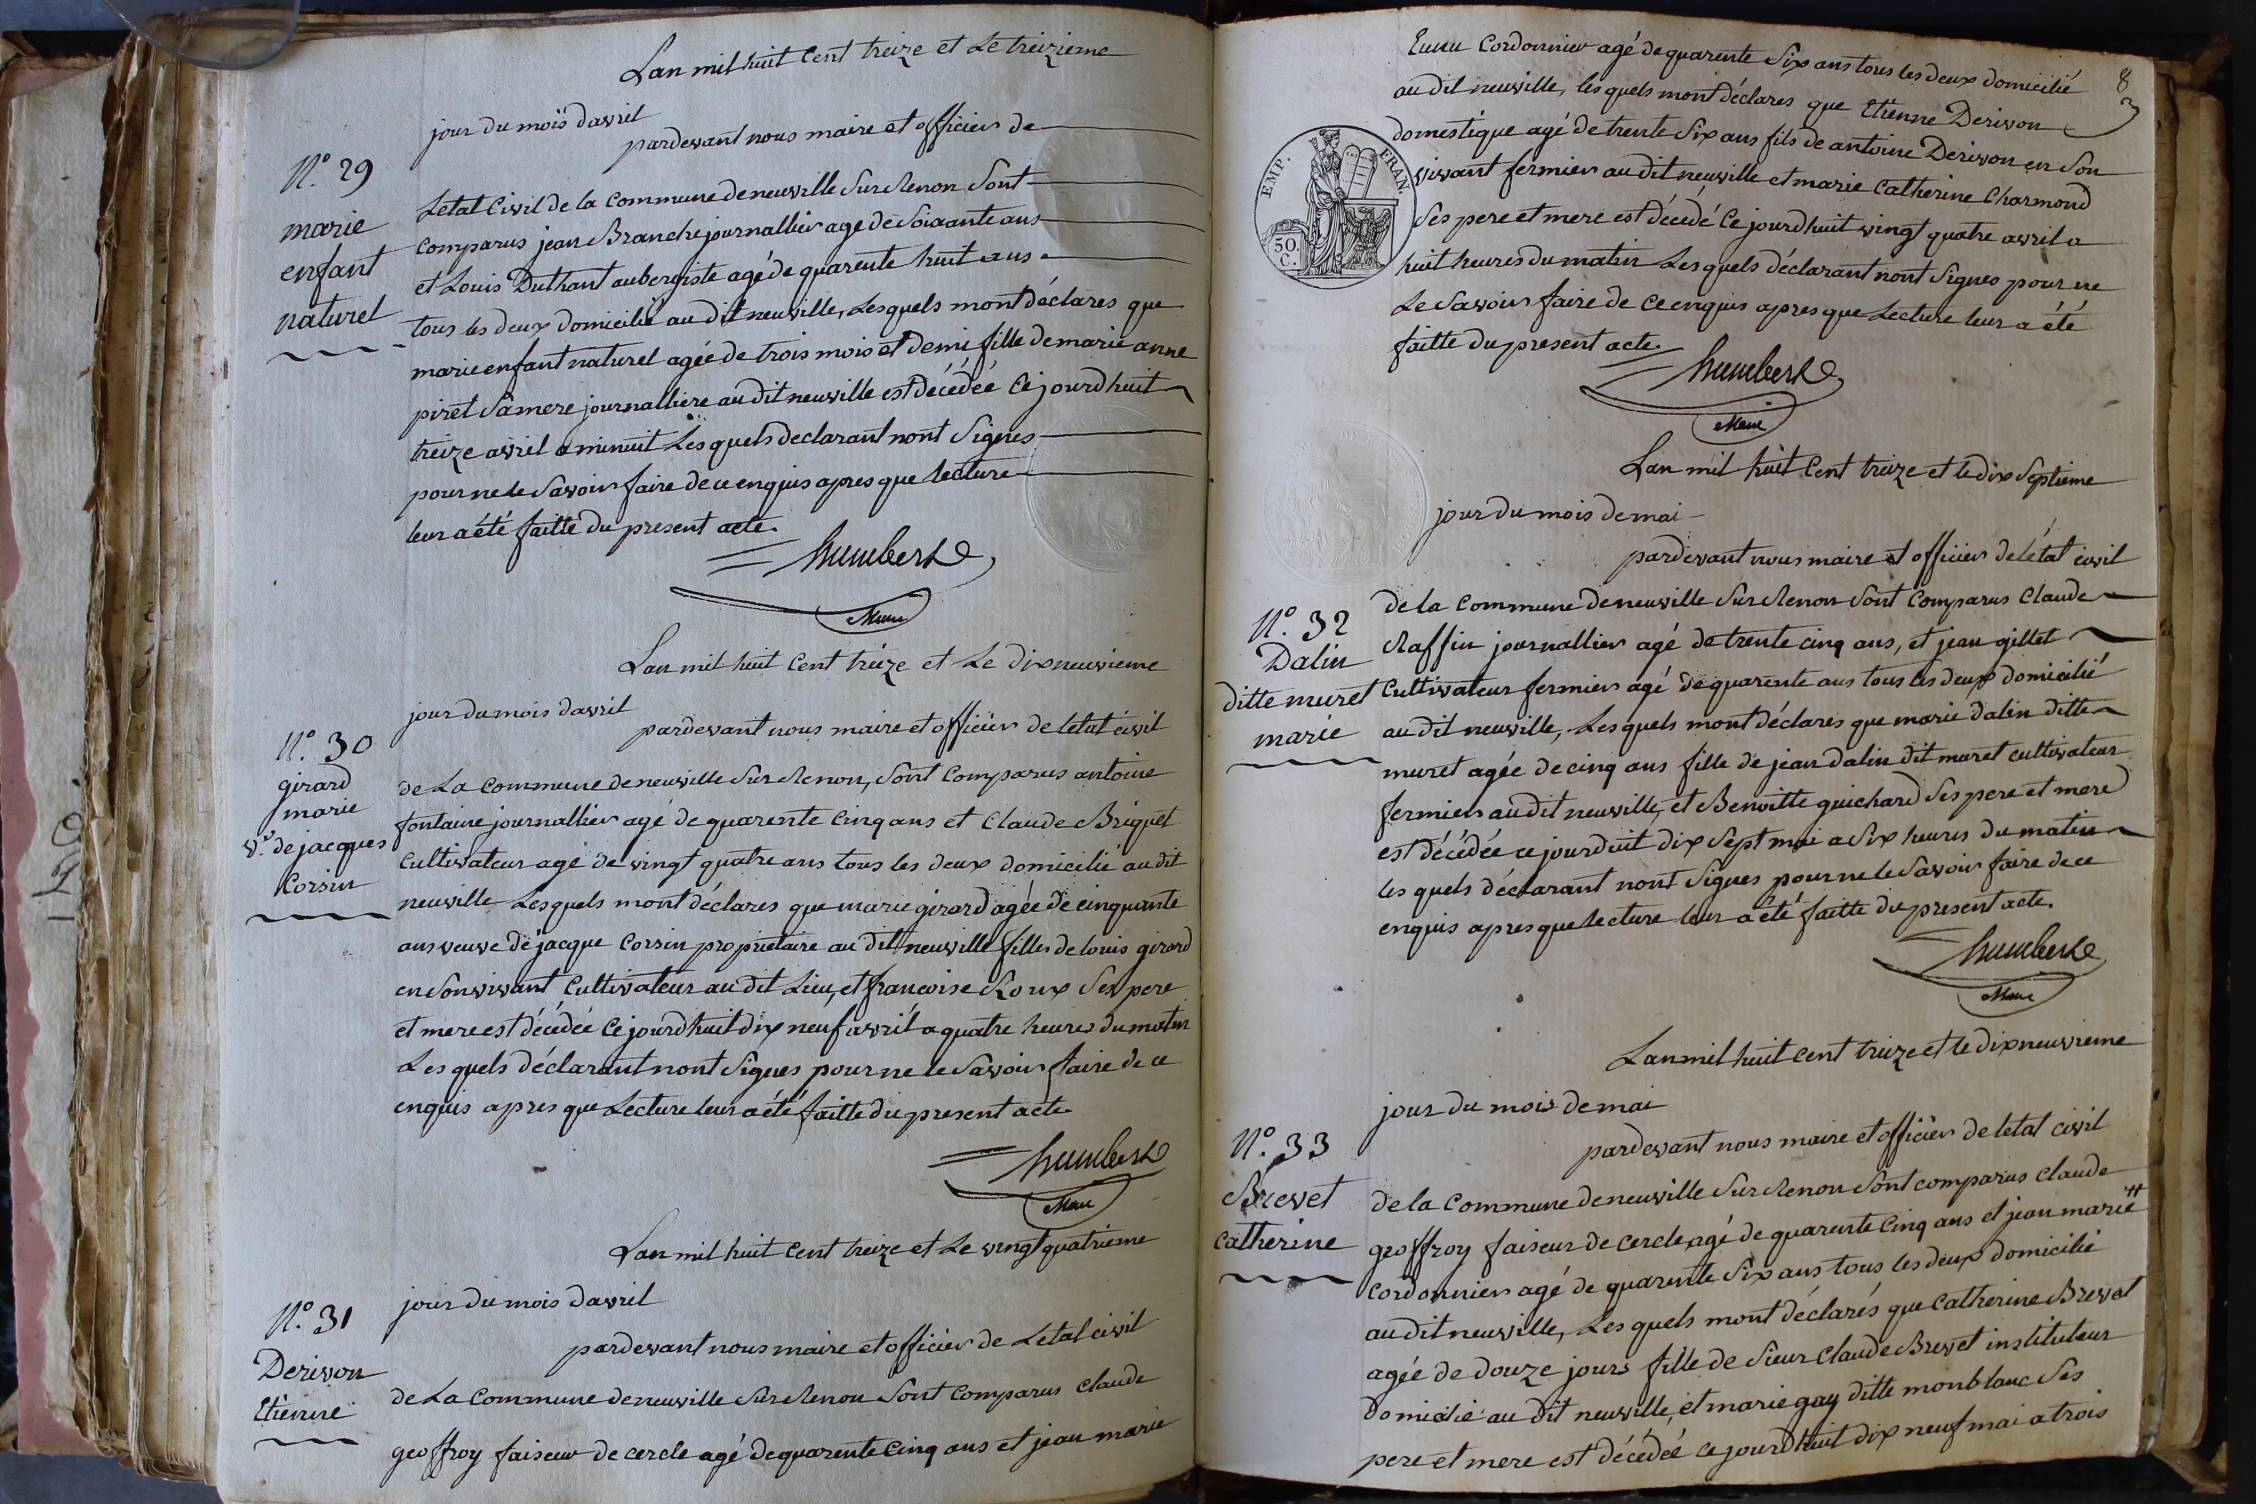 Lan mil huit Cent treize et Le treizieme
jour du mois davril
pardevant nous maire et officier de
N.° 29
marie
enfant
naturel
Letat Civil de la Commune deneuville Sur Renon Sont
comparus jean Branche journallier agé de Soixante ans
et Louis Duthant aubergiste agé de quarente huit ans
tous les deux domicilié au dit neuville, Lesquels mont déclares que
marie enfant naturel agée de trois mois et demi fille de marie anne
piret Samere journalliere au dit neuville est décédée Ce jourdhuit
treize avril a minuit Les quels declarant nont Signes
pour ne le Savoir faire de ce enquis apres que lecture
leur a été faitte du present acte.
humbert
Maire
Lan mil huit Cent treize et Le dixneuvieme
jour du mois davril
pardevant nous maire et officier de letat civil
N.° 30
girard
marie
v.e de jacques
Corsin
de La Commune de neuville Sur Renon, Sont Comparus antoine
fontaine journallier agé de quarente Cinq ans et Claude Briquet
Cultivateur agé de vingt quatre ans tous les deux domicilié au dit
neuville Lesquels mont déclares que marie girard agée de cinquante
ans veuve de jacque Corsin proprietaire au dit neuville filles de louis girard
en Sonvivant Cultivateur au dit Lieu, et francoise Roux Ses pere
et mere est décédée Ce jourdhuit dix neuf avril a quatre heures du matin
Les quels déclarant nont Signes pour ne le Savoir faire de ce
enquis apres que Lecture leur a été faitte du present acte
humbert
Maire
Lan mil huit Cent treize et Le vingt quatrieme
jour du mois davril
pardevant nous maire et officier de Letat civil
N.° 31
Derivon
Etienne
de La Commune deneuville Sur Renon Sont Comparus Claude
geoffroy faiseur de cercle agé de quarente Cinq ans et jean marie
8
3
Cordonnier agé de quarente Six ans tous les deux domicilié
au dit neuville, les quels mont déclares que Etienne Derivon
domestique agé de trente Six ans fils de antoine Derivon en Son
vivant fermier au dit neuville et marie Catherine Charmond
Ses pere et mere est décedé Ce jourdhuit vingt quatre avril a
huit heures du matin Les quels déclarant nont Signes pour ne
Le Savoir faire de ce enquis apres que Lecture leur a été
faitte du present acte.
EMP. FRAN.
50.
C.
humbert
Maire
Lan mil huit Cent treize et le dix Septieme
jour du mois de mai
pardevant nous maire et officier de létat civil
N.° 32
Dalin
ditte muret
marie
de la Commune de neuville Sur Renon Sont Comparus Claude
Raffin journallier agé de trente cinq ans, et jean gillet
Cultivateur fermier agé de quarente ans tous les deux domicilié
au dit neuville, Les quels mont déclares que marie dalin ditte
muret agée de cinq ans fille de jean dalin dit muret cultivateur
fermier au dit neuville, et Benoitte guichard Ses pere et mere
est décédée ce jourduit dix Sept mai a Six heures du matin
les quels déclarant nont Signes pour ne le Savoir faire de ce
enquis apres que lecture leur a été faitte du present acte.
humbert
Maire
Lan mil huit cent treize et le dixneuvieme
jour du mois de mai
pardevant nous maire et officier de letat civil
N.° 33
Brevet
Catherine
de la Commune de neuville Sur Renon Sont comparus Claude
geoffroy faiseur de cercle agé de quarente Cinq ans et jean marie
Cordonnier agé de quarente Six ans tous les deux domicilié
au dit neuville, Les quels mont déclarés que Catherine Brevet
agée de douze jours fille de Sieur Claude Brevet instituteur
domicilié au dit neuville, et marie gay ditte monblanc Ses
pere et mere est décédée ce jourdhuit dix neuf mai a trois